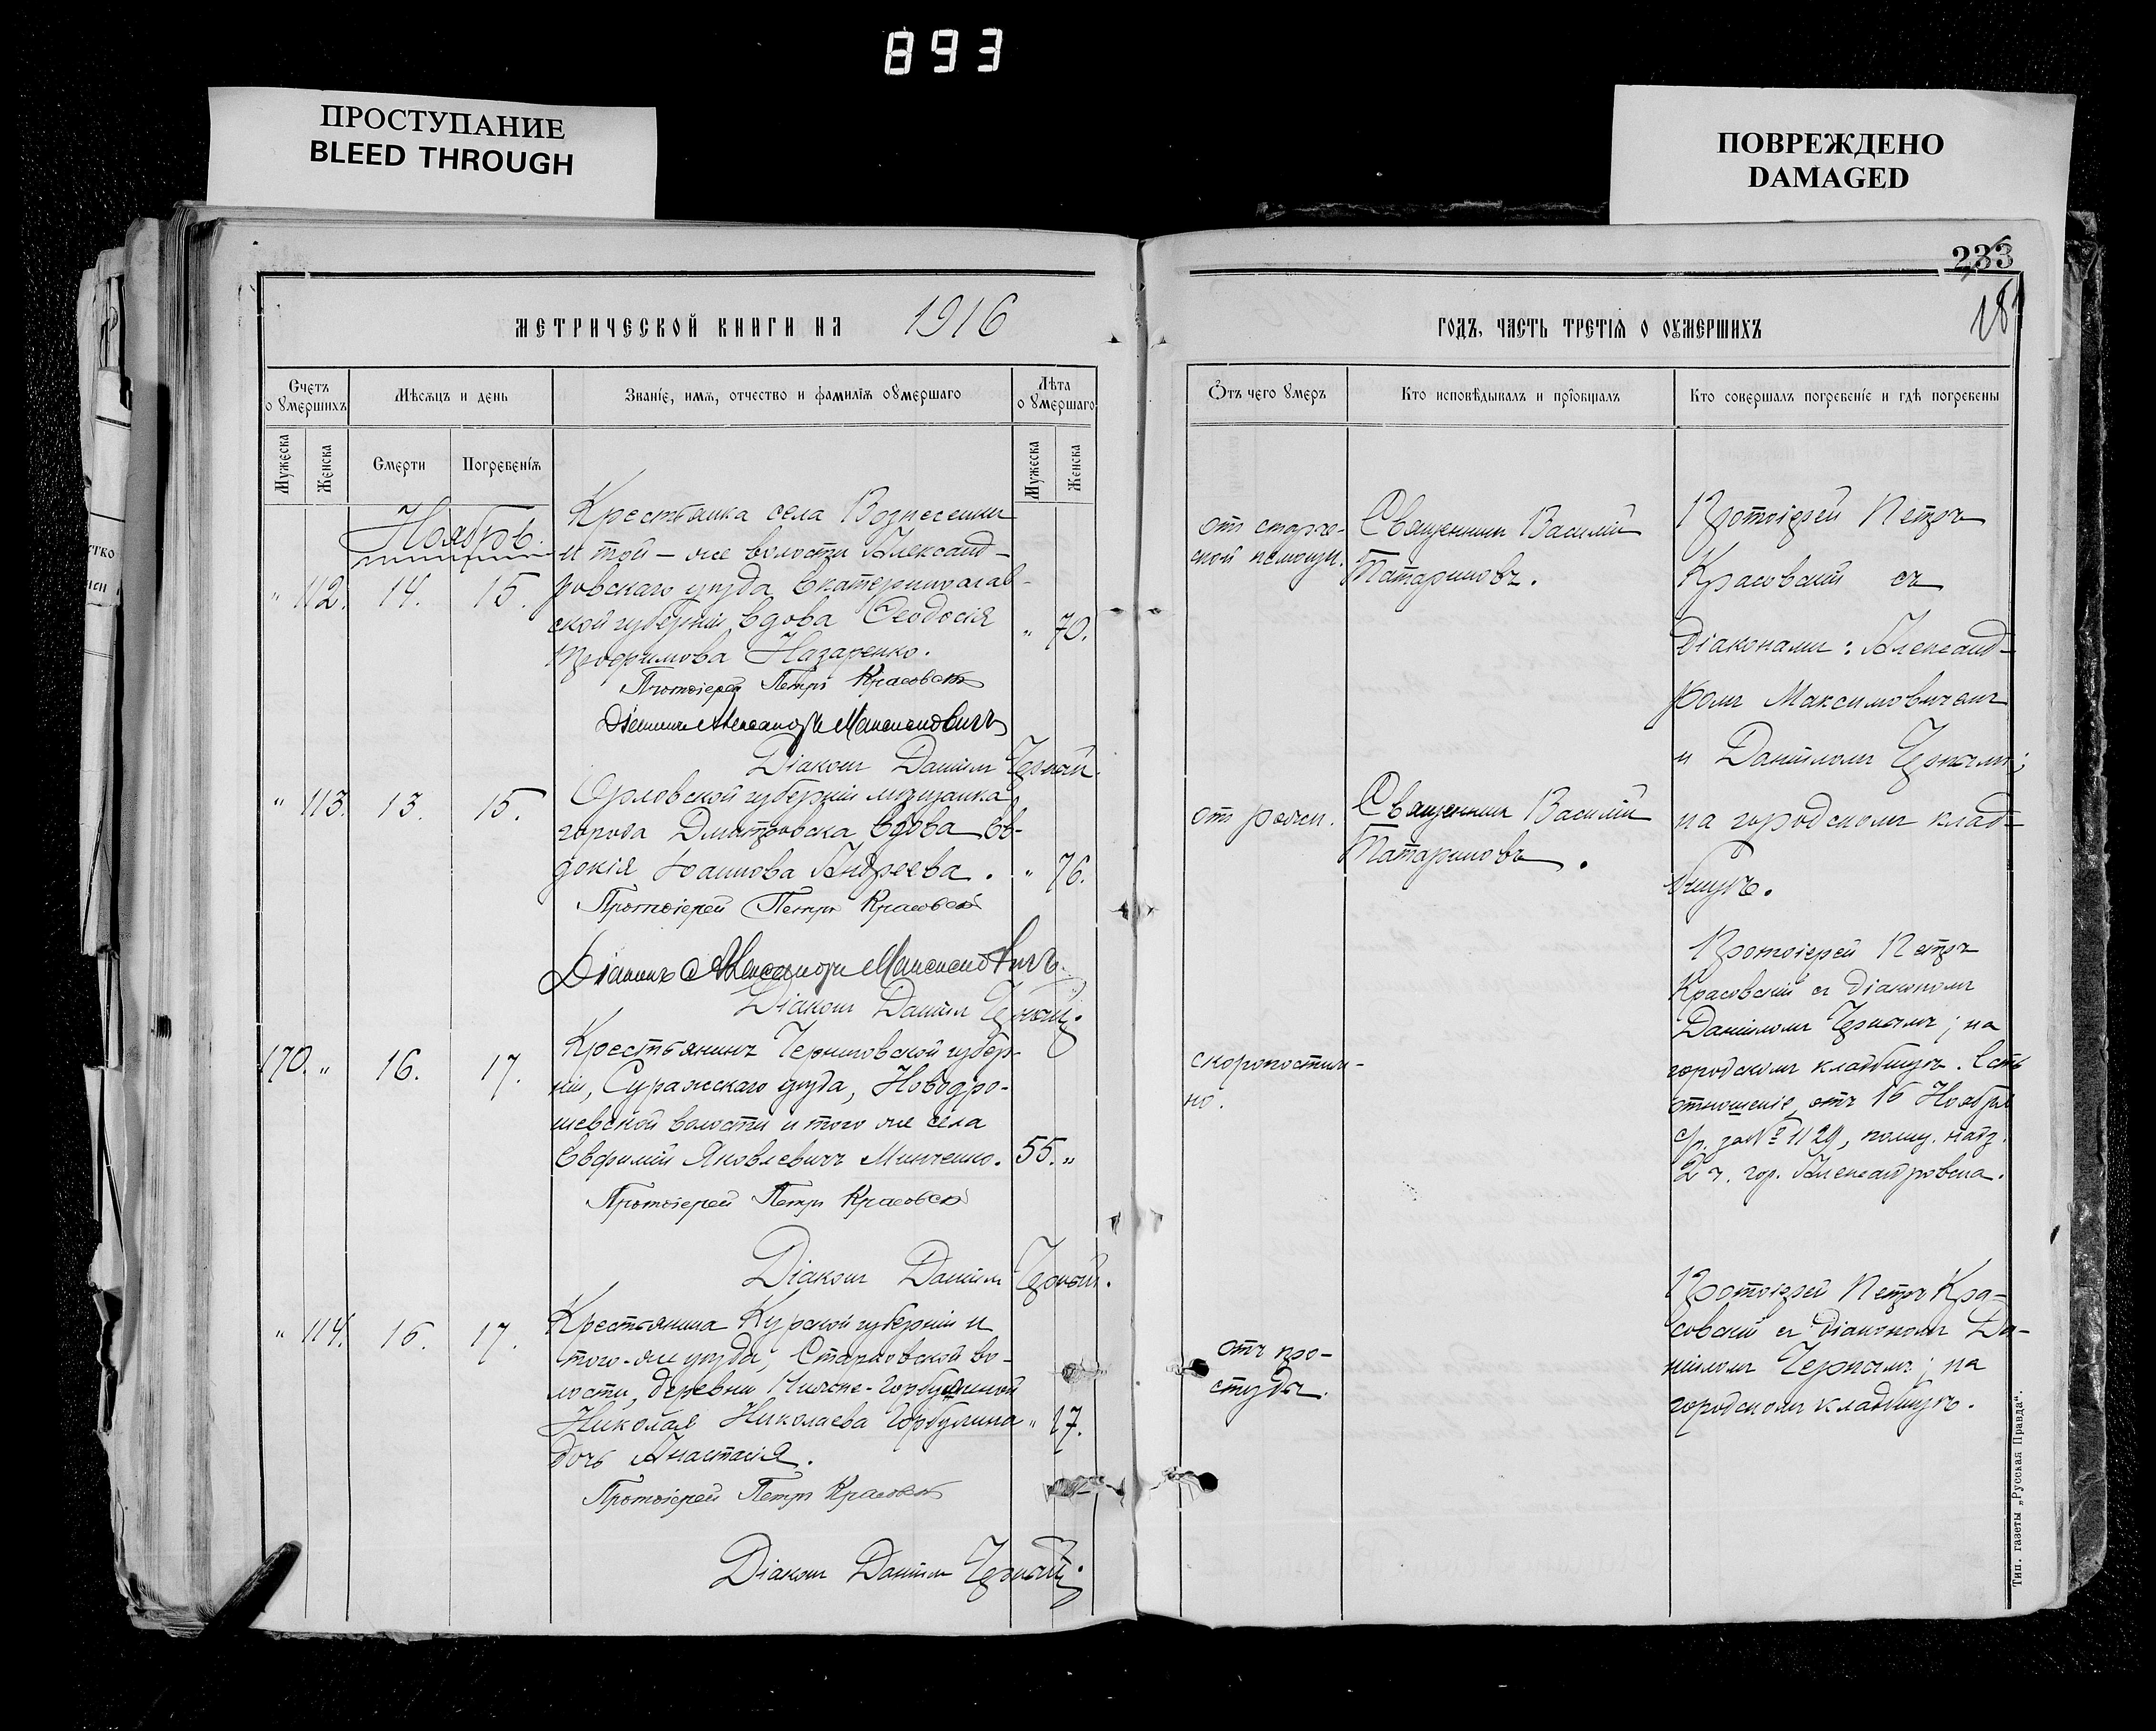 893
ПРОСТУПАНИЕ
BLEED THROUGH
ПОВРЕЖДЕНО
DAMAGED
233
МЕТРИЧЕСКОЙ КНИГИ НА 1916
ГОДЪ, ЧАСТЬ ТРЕТІЯ О ОУМЕРШИХЪ
Счетъ о умершихъ
Мѣсяцъ и день
Званіе, имя, отчество и фамилія оумершаго
Лѣта о умершаго
Мужеска
Женска
Смерти
Погребенія
Мужеска
Женска
Отъ чего умеръ
Кто исповѣдывалъ и пріобщалъ
Кто совершалъ погребеніе и гдѣ погребены
Ноябрь.
" 112. 14. 15.
Крестьянка села Вознесенки
и той-же волости Александ-
ровскаго уѣзда Екатеринослав-
ской губерніи вдова Ѳеодосія
Трофимова Назаренко.
" 70.
Протоіерей Петръ Красовскій
Діаконъ Александръ Максимовичъ
Діаконъ Даніилъ Черный.
от старче-
ской немощи.
Священникъ Василій
Татариновъ.
Протоіерей Петръ
Красовскій съ
діаконами: Александ-
ромъ Максимовичемъ
и Даніиломъ Чернымъ;
на городскомъ клад-
бищѣ.
" 113. 13. 15.
Орловской губерніи мѣщанка
города Дмитровска вдова Ев-
докія Іоаннова Андреева.
" 76.
Протоіерей Петръ Красовскій
Діаконъ Александръ Максимовичъ.
Діаконъ Даніилъ Черный.
от рожи.
Священникъ Василій
Татариновъ.
170. " 16. 17.
Крестьянинъ Черниговской губер-
ніи, Суражскаго уѣзда,
волости и того же села
Евфимій Яковлевичъ Минченко.
55. "
Протоіерей Петръ Красовскій
Діаконъ Даніилъ Черный.
скоропостиж-
но.
Протоіерей Петръ
Красовскій съ діакономъ
Даніиломъ Чернымъ; на
городскомъ кладбищѣ. Есть
отношеніе отъ 16 Ноября
за № 1129, надз.
2 ч. гор. Александровска.
" 114. 16. 17.
Крестьянина Курской губерніи и
того-же уѣзда, во-
лости, деревни
Николая Николаева
дочь Анастасія.
" 17.
Протоіерей Петръ Красовскій
Діаконъ Даніилъ Черный.
отъ про-
студы.
Протоіерей Петръ Кра-
совскій съ діакономъ Да-
ніиломъ Чернымъ; на
городскомъ кладбищѣ.
Тип. газеты „Русская Правда“.